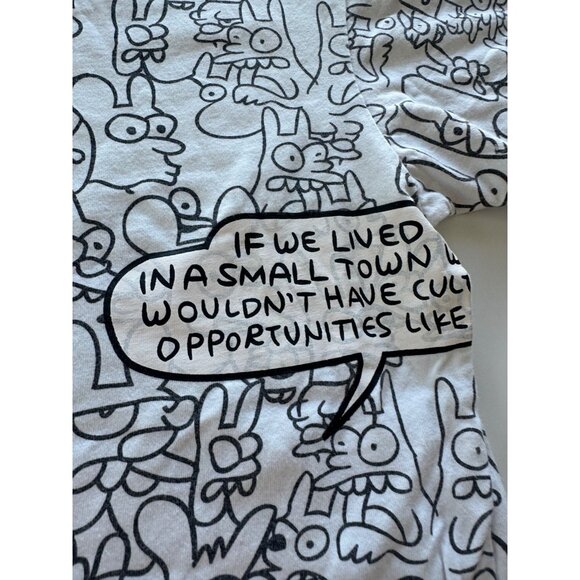 IF WE LIVED
IN A SMALL TOWN
WOULDN'T HAVE
OPPORTUNITIES LIKE